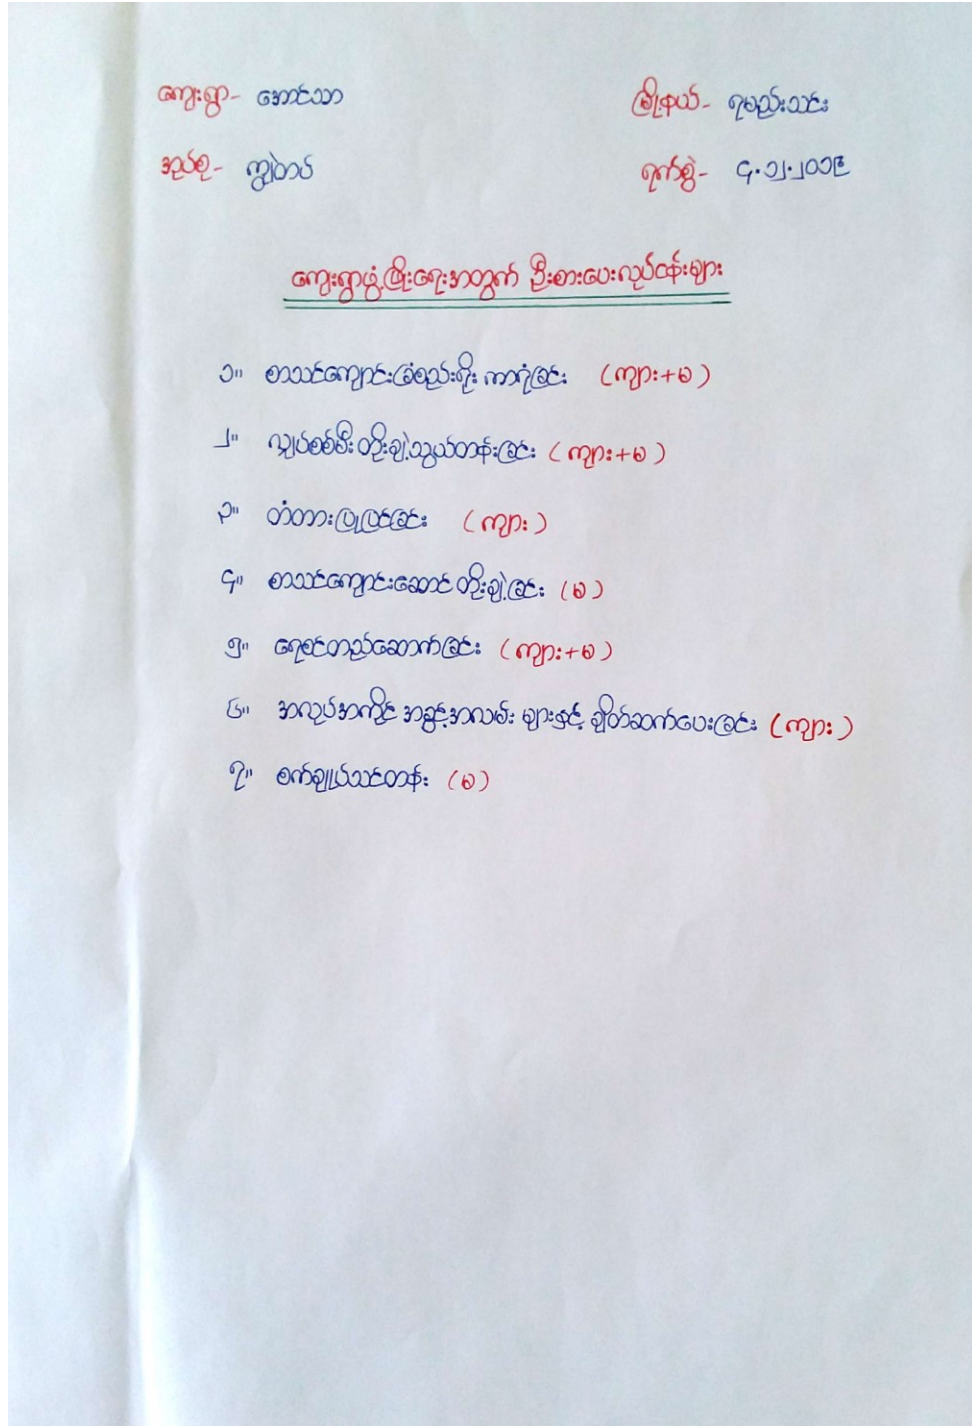 ကျေးရွာ- အောင်သာ မြို့နယ်- ရမည်းသင်း
အုပ်စု- ကျွဲတပ် ရက်စွဲ- ၄.၁၂.၂၀၁၉
ကျေးရွာဖွံ့ဖြိုးရေးအတွက် ဦးစားပေးလုပ်ငန်းများ
၁။ စာသင်ကျောင်းခြံစည်းရိုး ကာရံခြင်း (ကျား+မ)
၂။ လျှပ်စစ်မီး တိုးချဲ့သွယ်တန်းခြင်း (ကျား+မ)
၃။ တံတားပြုပြင်ခြင်း (ကျား)
၄။ စာသင်ကျောင်းဆောင် တိုးချဲ့ခြင်း (မ)
၅။ ရေစင်တည်ဆောက်ခြင်း (ကျား+မ)
၆။ အလုပ်အကိုင် အခွင့်အလမ်း များနှင့် ချိတ်ဆက်ပေးခြင်း (ကျား)
၇။ စက်ချုပ်သင်တန်း (မ)